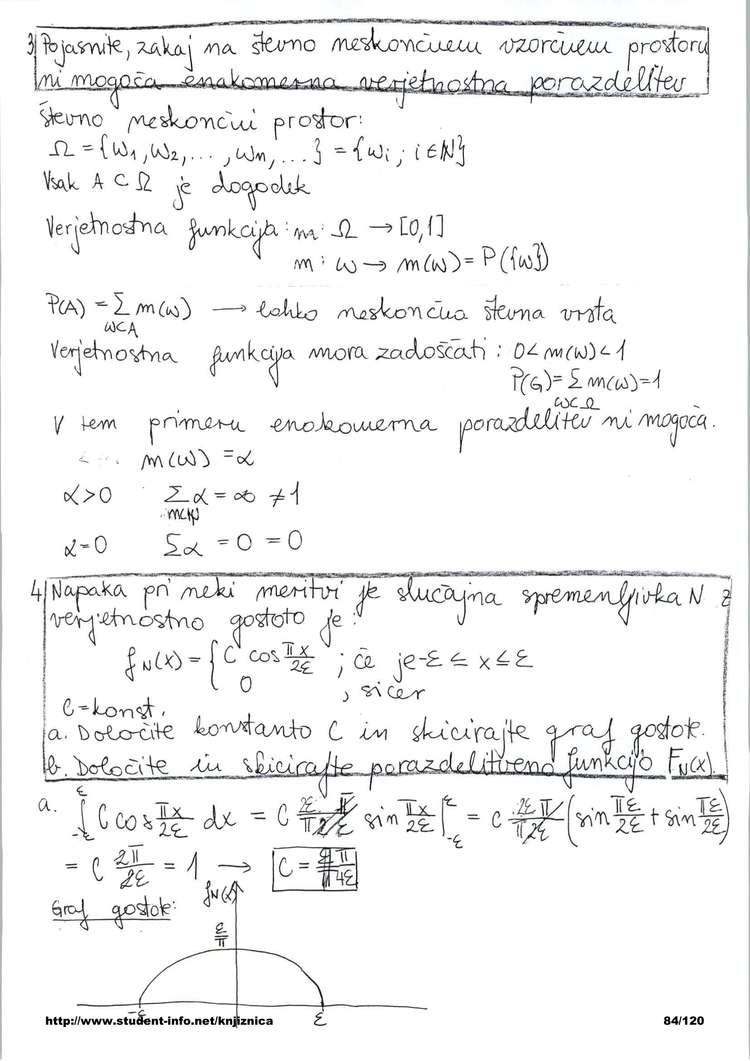 3) Pojasnite, zakaj na števno neskončnem vzorčnem prostoru
ni mogoča enakomerna verjetnostna porazdelitev
števno neskončni prostor:
Ω = {ω1, ω2, ..., ωn, ...} = {ωi ; i ∈ N}
Vsak A ⊂ Ω je dogodek
Verjetnostna funkcija: m: Ω → [0,1]
m : ω → m(ω) = P({ω})
P(A) = Σ m(ω) → lahko neskončna števna vrsta
ω⊂A
Verjetnostna funkcija mora zadoščati : 0 < m(ω) < 1
P(G) = Σ m(ω) = 1
ω⊂Ω
V tem primeru enakomerna porazdelitev ni mogoča.
m(ω) = α
α > 0 Σ α = ∞ ≠ 1
α = 0 Σα = 0 = 0
4) Napaka pri neki meritvi je slučajna spremenljivka N z
verjetnostno gostoto je:
fN(x) = { C cos πx/2ε ; če je -ε ≤ x ≤ ε
0 , sicer
C = konst.
a. Določite konstanto C in skicirajte graf gostote.
b. Določite in skicirajte porazdelitveno funkcijo FN(x).
a. ∫ C cos πx/2ε dx = C sin πx/2ε | = C (sin πε/2ε + sin πε/2ε)
= C 2π/2ε = 1 → C = π/4ε
Graf gostote:
fN(x)
ε/π
-ε ε
http://www.student-info.net/knjiznica 84/120